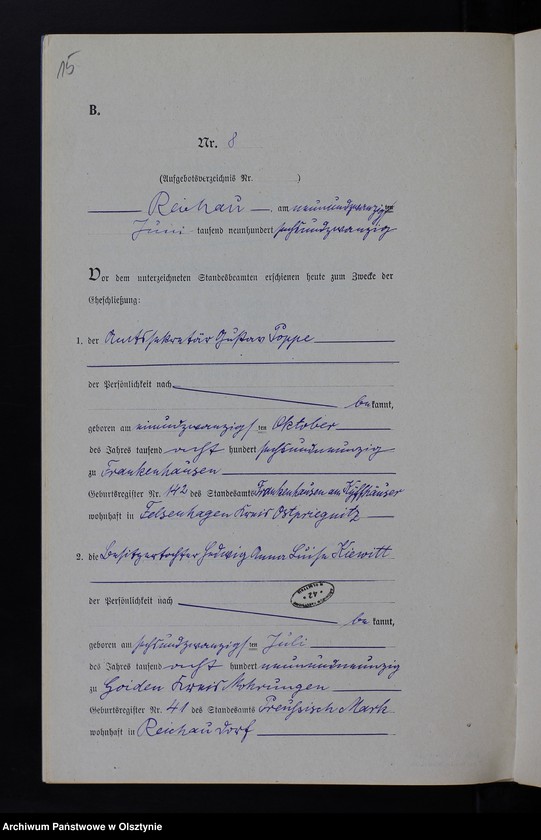 15
B.
Nr. 8
(Aufgebotsverzeichnis Nr. )
Reichau, am neunundzwanzigsten
Juni tausend neunhundert sechsundzwanzig
Vor dem unterzeichneten Standesbeamten erschienen heute zum Zwecke der
Eheschließung:
1. der Amtssekretär Gustav Poppe
der Persönlichkeit nach
bekannt,
geboren am einundzwanzigsten Oktober
des Jahres tausend acht hundert sechsundneunzig
zu Frankenhausen
Geburtsregister Nr. 142 des Standesamts Frankenhausen am Kyffhäuser
wohnhaft in Felsenhagen Kreis Ostpriegnitz
2. die Besitzertochter Hedwig Anna Luise Kiewitt
der Persönlichkeit nach
bekannt,
geboren am sechsundzwanzigsten Juli
des Jahres tausend acht hundert neunundneunzig
zu Goiden Kreis Mohrungen
Geburtsregister Nr. 41 des Standesamts Preußisch Mark
wohnhaft in Reichau Dorf
Archiwum Państwowe w Olsztynie